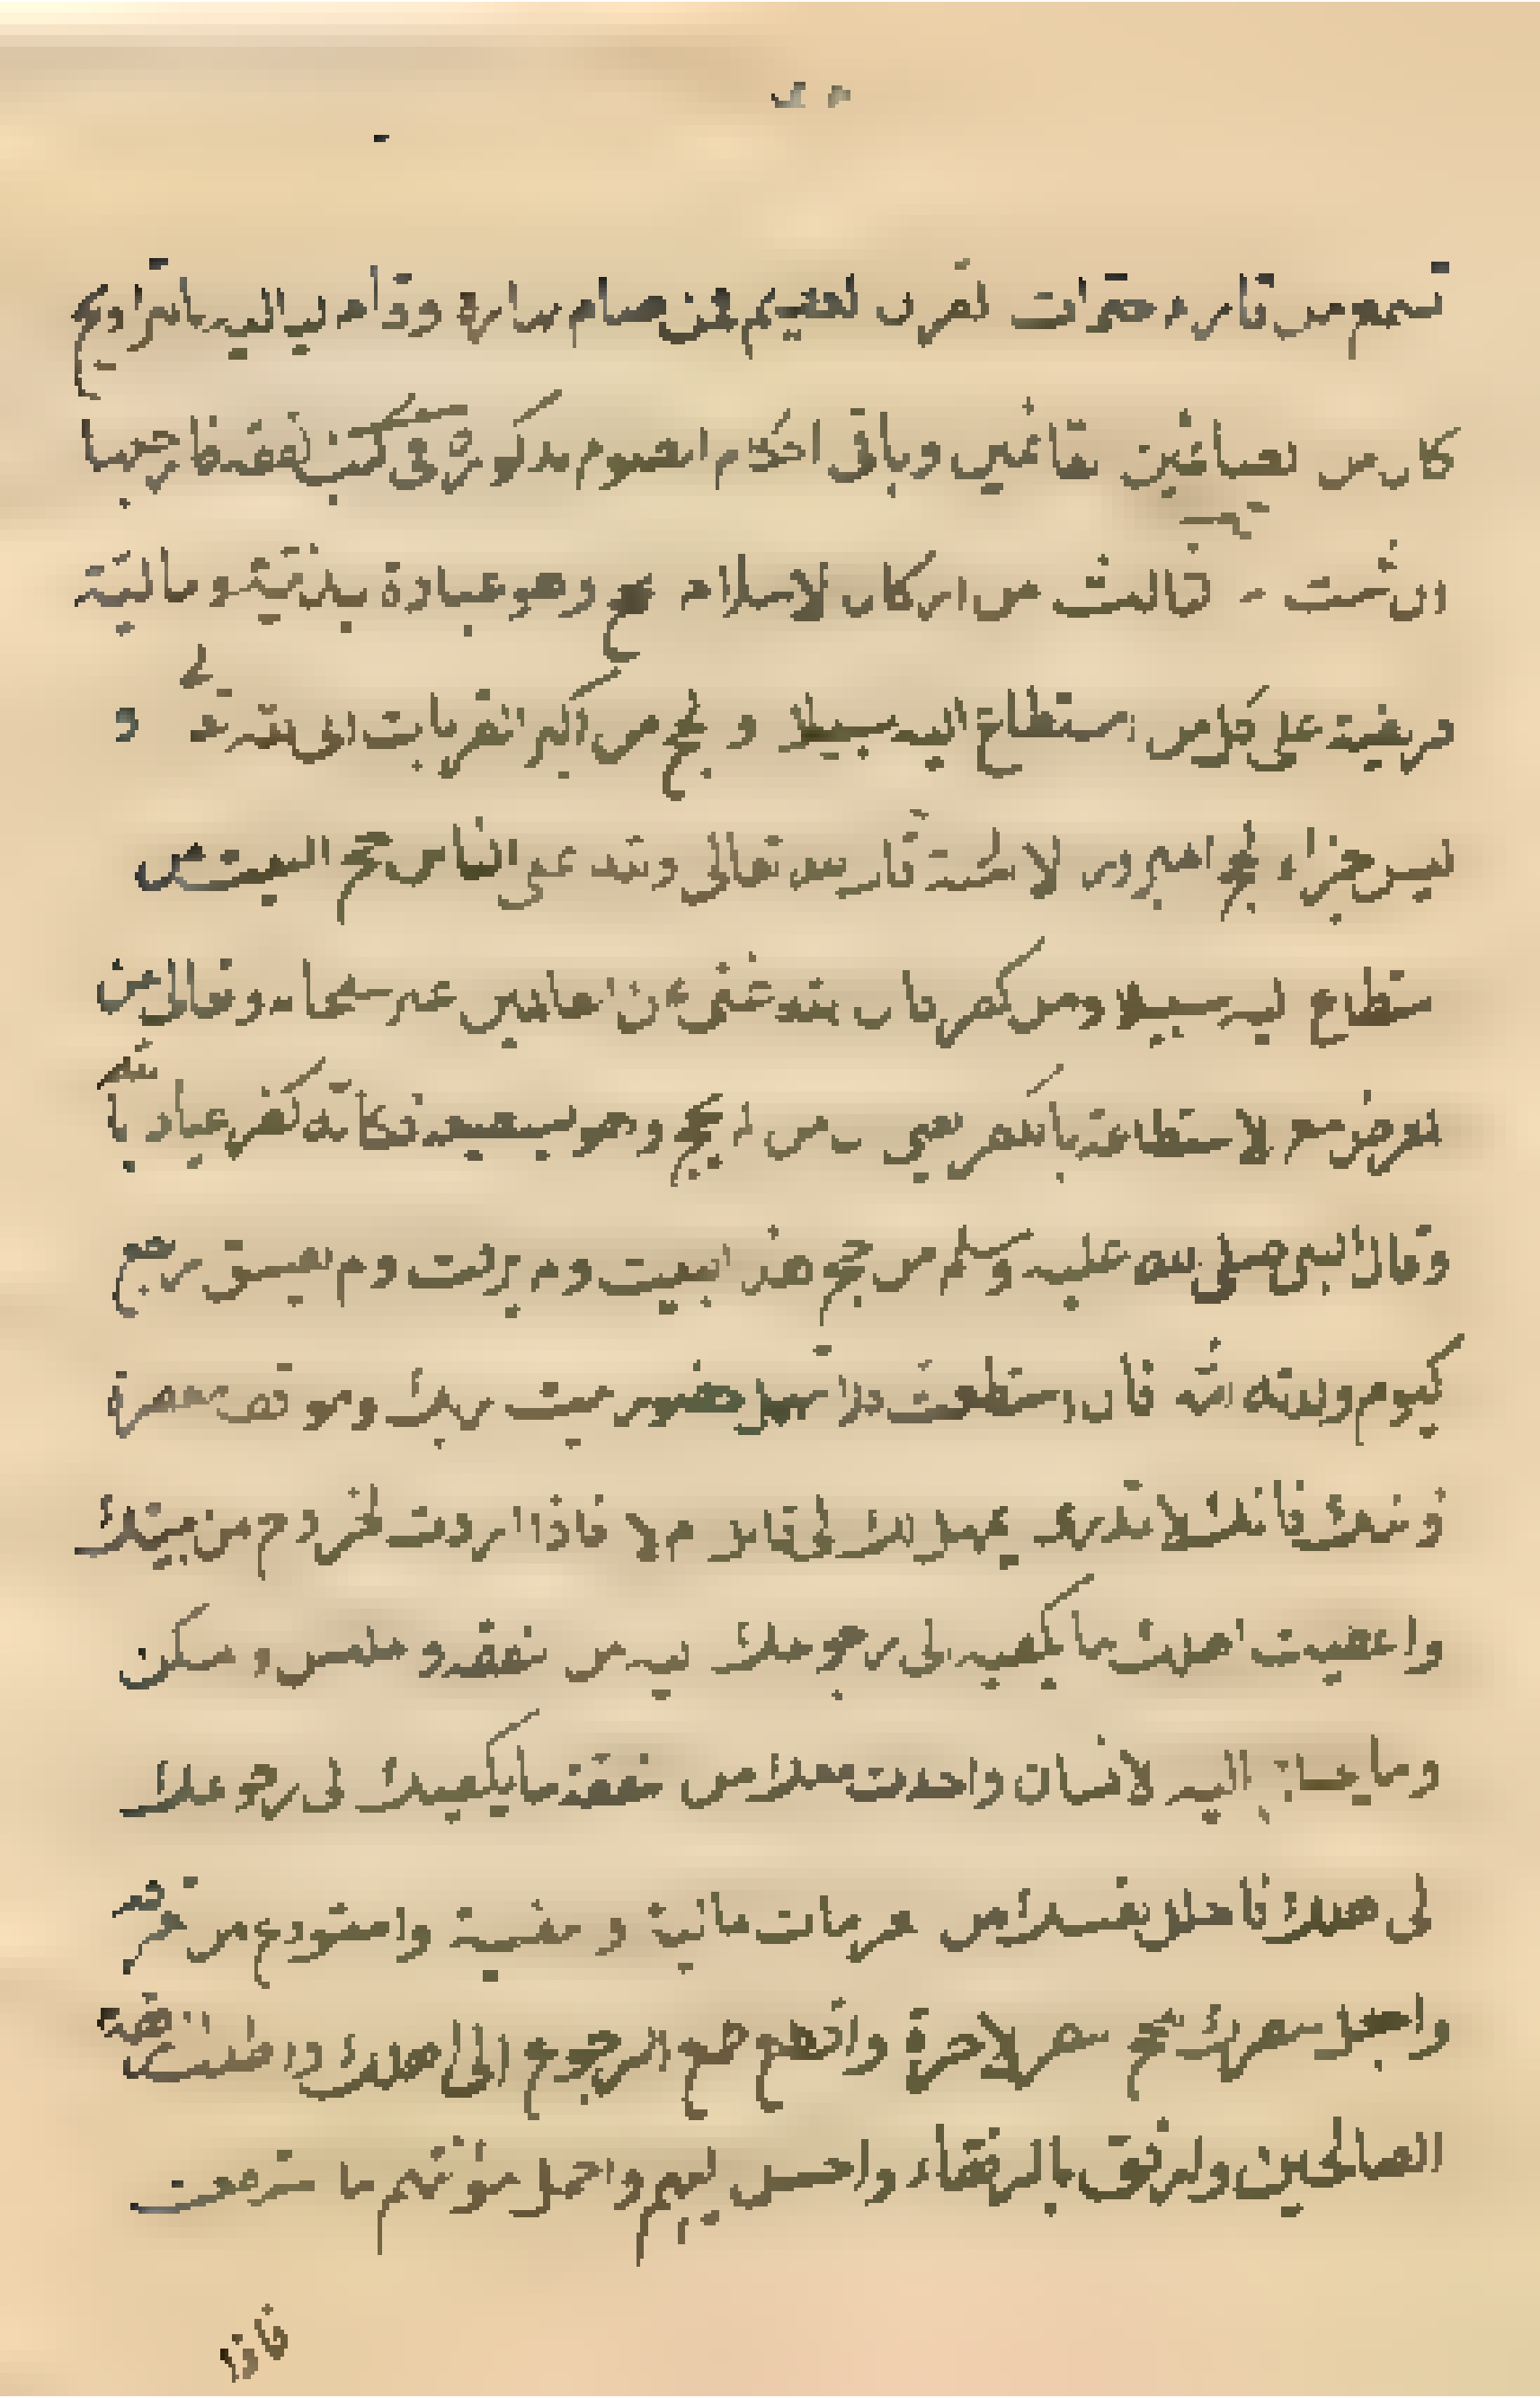 تسمع من قارء حتمات القران العظيم فمن صام نهاره وقام لياليه بالتراويح
كان من الصائمين القائمين وباقى احكام الصوم مذكورة فى كتب الفقه فراجعها
ان شئت الثالث من اركان الاسلام الحج وهو عبادة بدنية ومالية
فريضة على كل من استطاع اليه سبيلا والحج من اكبر القربات الى الله تعالى و
ليس جزاء الحج المبرور الا الجنة قال الله تعالى ولله على الناس حج البيت من
استطاع اليه سبيلا ومن كفر فان الله غنى عن العالمين عبر سبحانه وتعالى عن
المعرض مع الاستطاعة بالكفر يعنى من لم يحج وهو مستطيع فكانه كفر عياذا بالله
وقال النبى صلى الله عليه وسلم من حج هذا البيت ولم يرفث ولم يفسق رجع
كيوم ولدته امه فان استطعت فلا تهمل حضور بيت ربك ومواقف
فانك لا تدرى يمهلك الى قابل ام لا فاذا اردت الخروج من بيتك
واعطيت اهلك ما يكفيه الى رجوعك اليه من نفقة وملبس ومسكن
وما يحتاج اليه الانسان واخذت معك من نفقة ما يكفيك الى رجوعك
الى اهلك فاحلل نفسك من مالية ونفسية واستودع من
واجعل سفرك للحج سفر الاخرة واقطع طمع الرجوع الى اهلك واطلب
الصالحين وارفق بالرفقاء واحسن اليهم واحمل مؤنتهم ما استطعت
فاذا